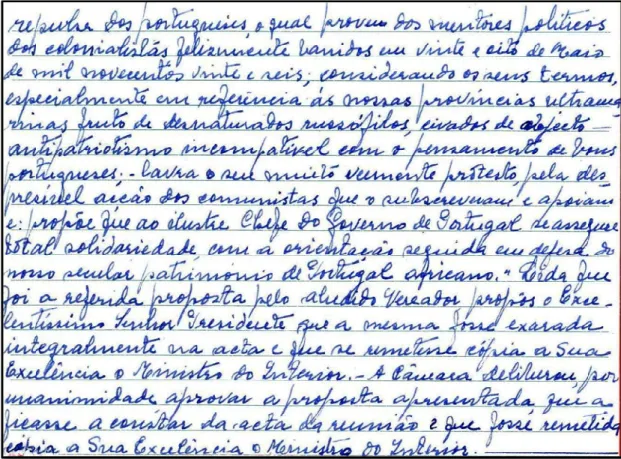 repulsa dos portugueses, o qual proveu dos mentores politicos
dos colonialistas felizmente banidos em vinte e oito de Maio
de mil novecentos vinte e seis; considerando os seus termos,
especialmente em referência ás nossas provincias ultrama-
rinas fruto de desnaturados russófilos, eivados de abjecto
antipatriotismo incompativel com o pensamento de bons
portugueses; - lavra o seu muito vemente protesto, pela des
presivel acção dos comunistas que o subscreveram e apoiam
e: propõe que ao ilustre Chefe do Governo de Portugal se assegure
total solidariedade com a orientação seguida em defesa do
nosso secular património de Portugal africano." Lida que
foi a referida proposta pelo aludido Vereador propôs o Exce-
lentissimo Senhor Presidente que a mesma fosse exarada
integralmente na acta e que se remetesse cópia a Sua
Excelência o Ministro do Interior. - A Câmara deliberou por
unanimidade aprovar a proposta apresentada, que a
ficasse a constar da acta da reunião e que fosse remetida
cópia a Sua Excelência o Ministro do Interior.